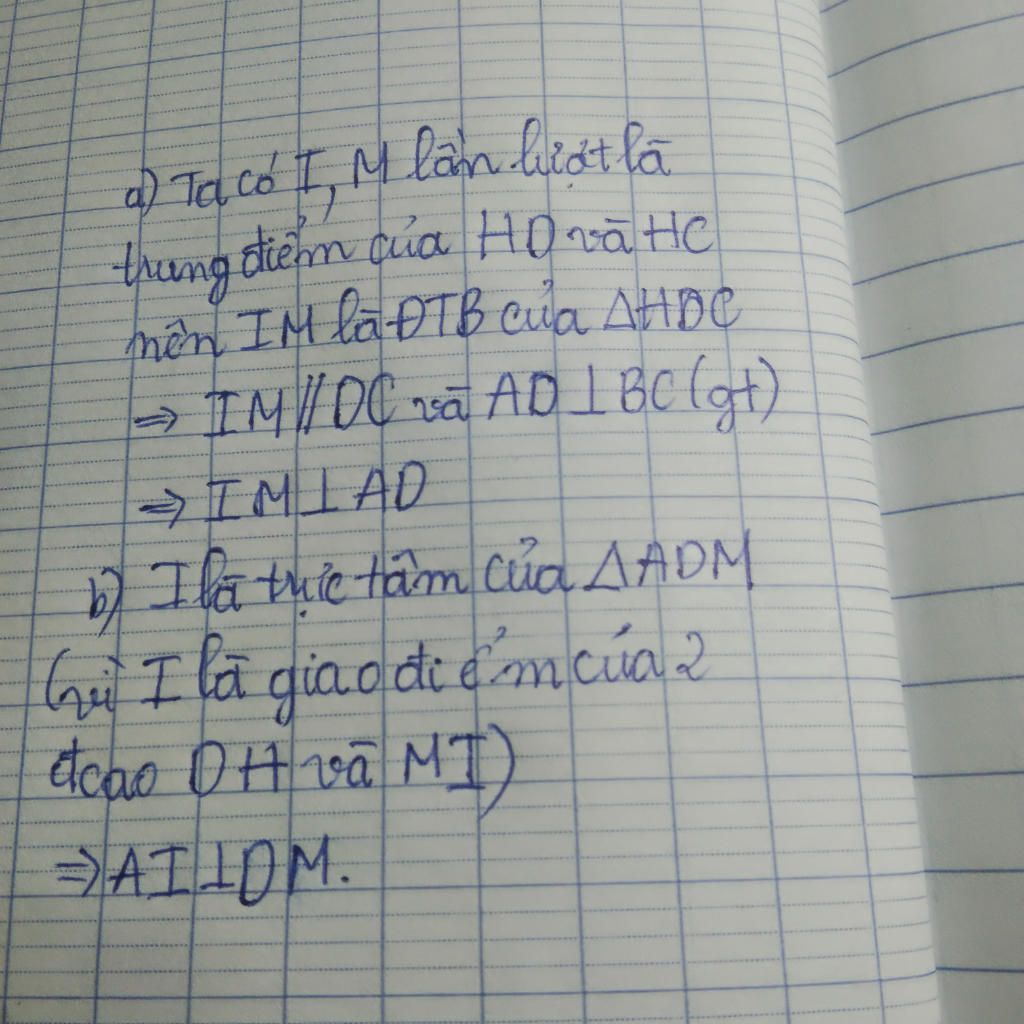 a) Ta có I, M lần lượt là
trung điểm của HD và HC
nên IM là ĐTB của ΔHDC
⇒ IM // DC và AD ⊥ BC (gt)
⇒ IM ⊥ AD
b) I là trực tâm của ΔADM
(vì I là giao điểm của 2
đcao DH và MI)
⇒ AI ⊥ DM.